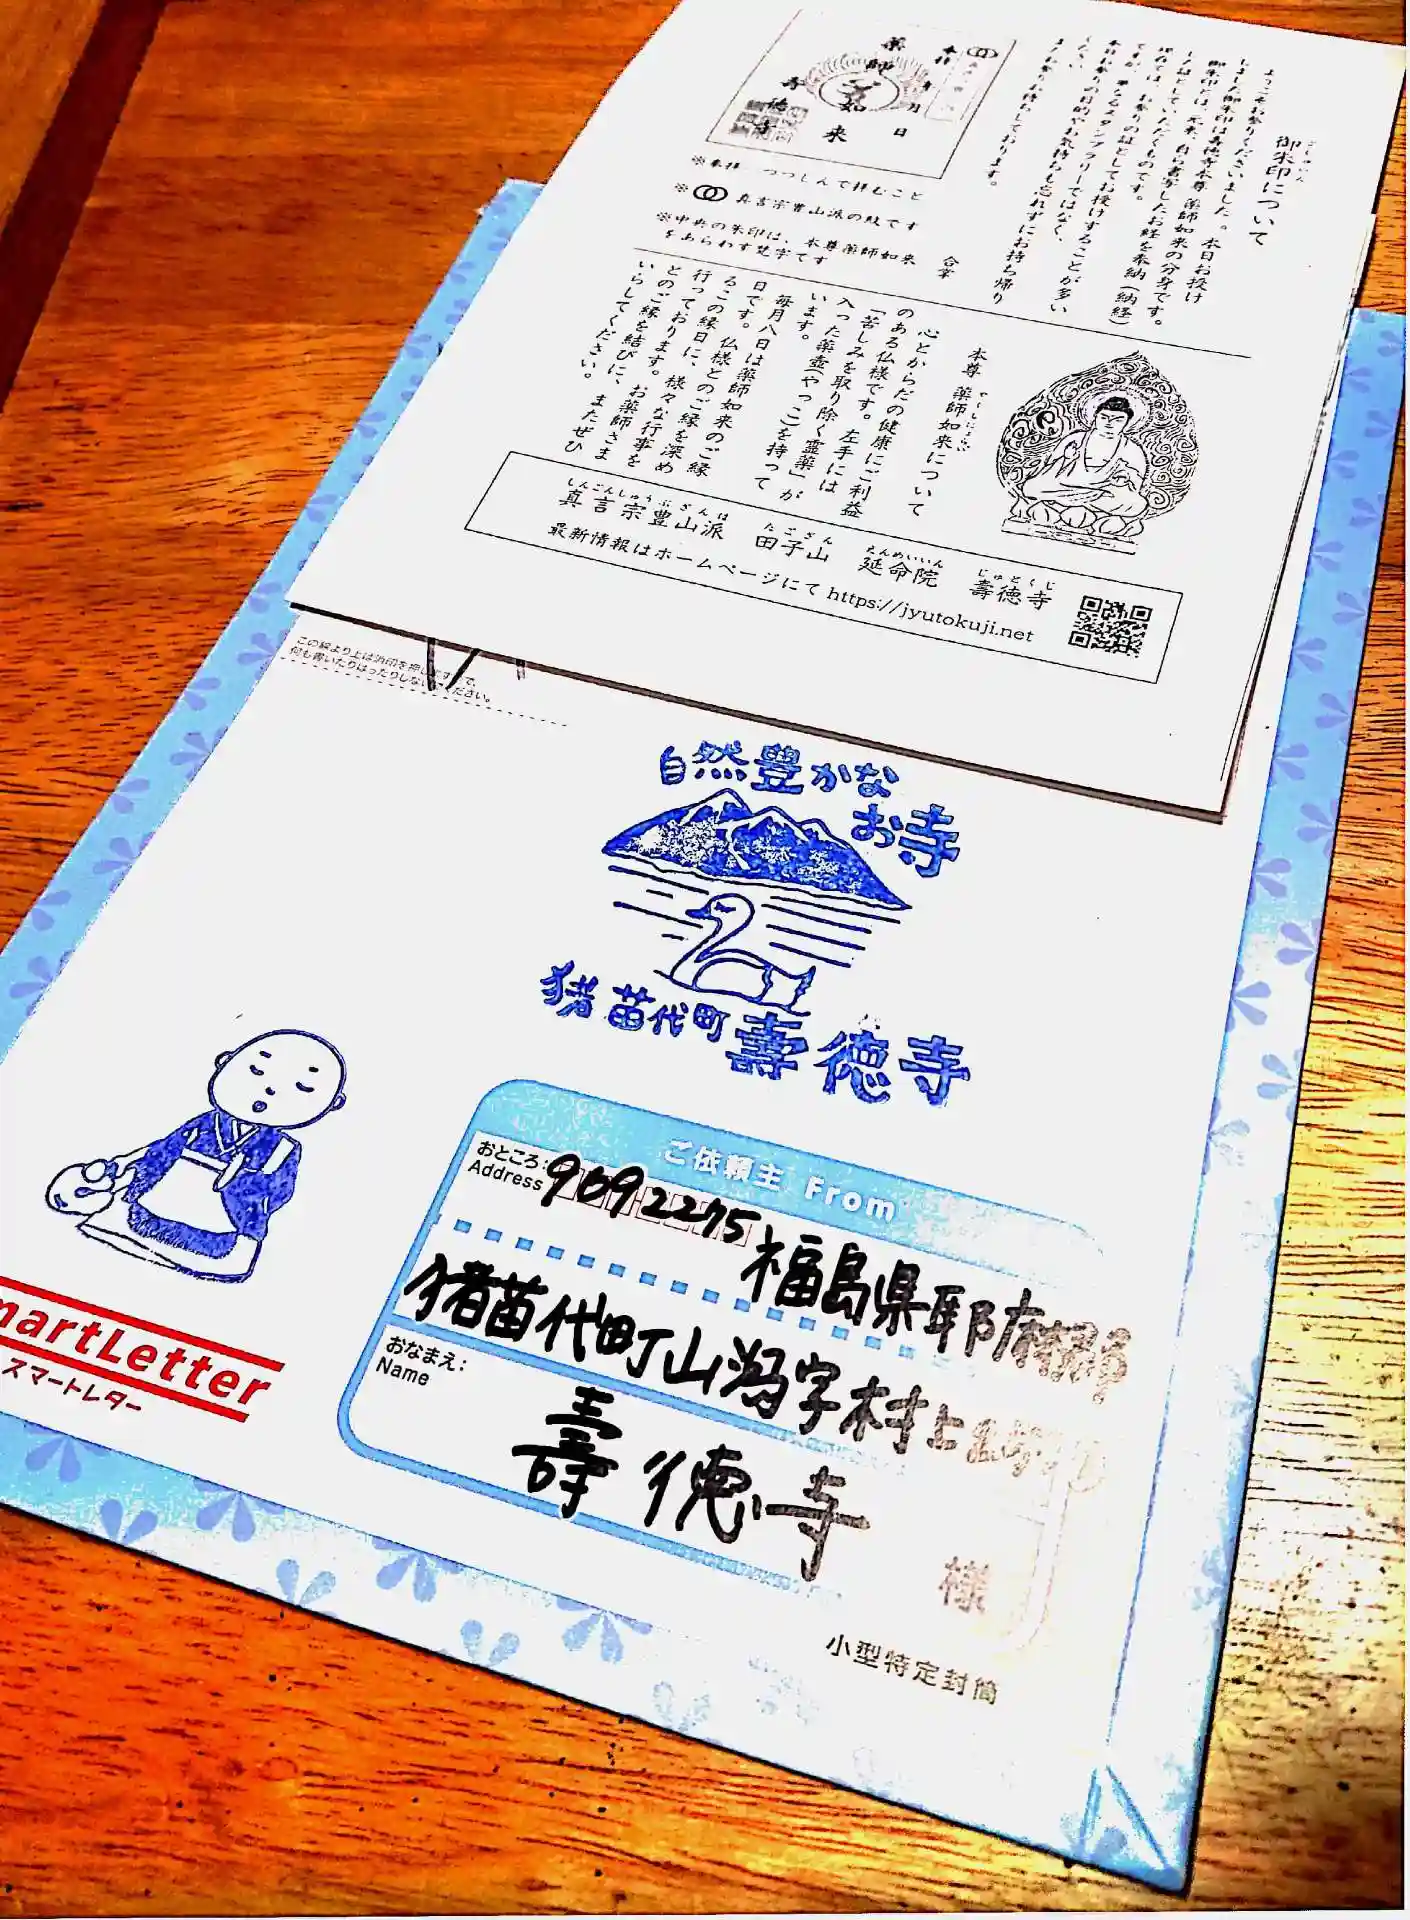 御朱印について
ごしゅいん
ようこそお参りくださいました。本日お授け
しました御朱印は壽徳寺本尊 薬師如来の分身です。
御朱印とは、元来、自ら書写したお経を奉納(納経)
した証としていただくものです。
現在では、お参りの証としてお授けすることが多い
ですが、単なるスタンプラリーではなく、
本日お参りの目的やお気持ちも忘れずにお持ち帰り
ください。
またお参りお待ちしております。
合掌
奉拝
年 月 日
薬師如来
壽徳寺
※奉拝…つつしんで拝むこと
※ 真言宗豊山派の紋です
※中央の朱印は、本尊薬師如来
をあらわす梵字です
本尊 薬師如来について
やくしにょらい
心とからだの健康にご利益
のある仏様です。左手には
「苦しみを取り除く霊薬」が
入った薬壺(やっこ)を持って
います。
毎月八日は薬師如来のご縁
日です。仏様とのご縁を深め
るこの縁日に、様々な行事を
行っております。お薬師さま
とのご縁を結びに、またぜひ
いらしてください。
しんごんしゅうぶざんは たごさん えんめいいん じゅとくじ
真言宗豊山派 田子山 延命院 壽徳寺
最新情報はホームページにて https://jyutokuji.net
この線より上は消印を押しますので、
何も書いたりはったりしないでください。
自然豊かな
お寺
猪苗代町 壽徳寺
ご依頼主 From
おところ:
Address
9092275
福島県耶麻郡
猪苗代町山潟字村上
おなまえ:
Name
壽徳寺
様
martLetter
スマートレター
小型特定封筒